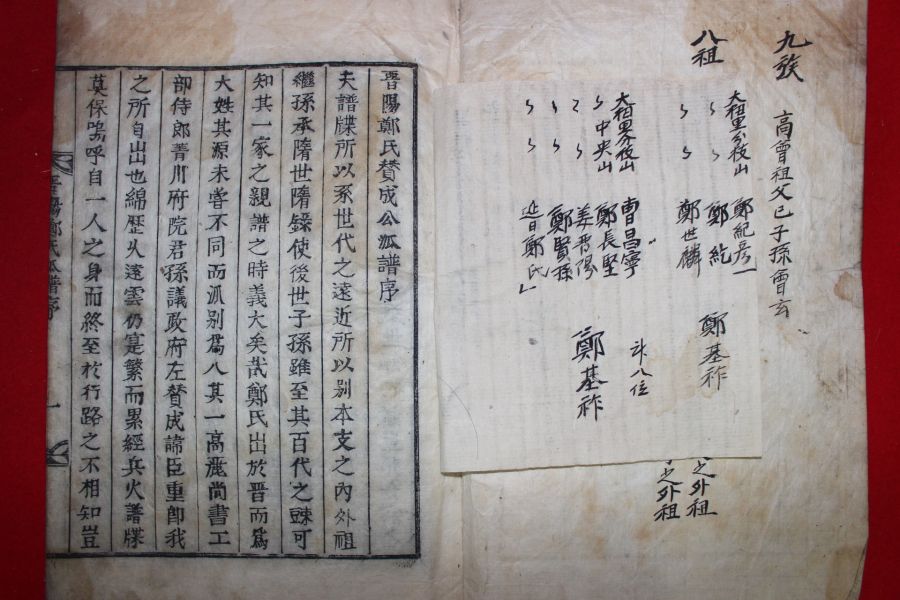 九族
高曾祖父己子孫曾玄
八祖
之外祖
之外祖
鄭紀彦
鄭紇
鄭世麟
鄭基祚
曺昌寧
鄭長堅
中央山
姜晋陽
鄭賢孫
鄭氏
八位
鄭基祚
晋陽鄭氏贊成公派譜序
夫譜牒所以系世代之遠近所以别本支之内外祖
繼孫承隋世隋錄使後世子孫雖至其百代之踈可
知其一家之親譜之時義大矣哉鄭氏出於晋而爲
大姓其源未嘗不同而派别爲八其一高麗尚書工
部侍郎菁川府院君孫議政府左贊成諦臣重卽我
之所自出也綿歷久遠雲仍寔繁而累經兵火譜牒
莫保嗚呼自一人之身而終至於行路之不相知豈
晋陽鄭氏派譜序
一